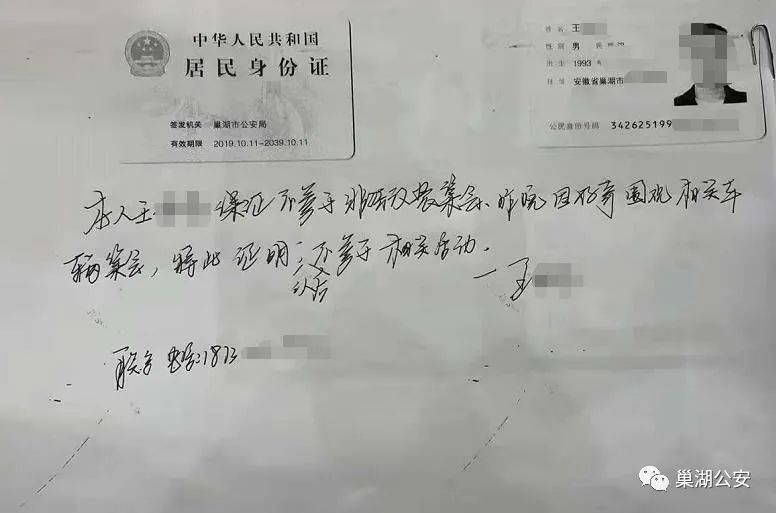 中华人民共和国
居民身份证
签发机关 巢湖市公安局
有效期限 2019.10.11-2039.10.11
姓名 王
性别 男 民族 汉
出生 1993
住址 安徽省巢湖市
公民身份号码 342625199
本人王 保证不参于非法改装集会、昨晚因好奇围观相关车
辆集会，特此证明：不参于相关活动.
以后
一王
联系电话:1873
巢湖公安